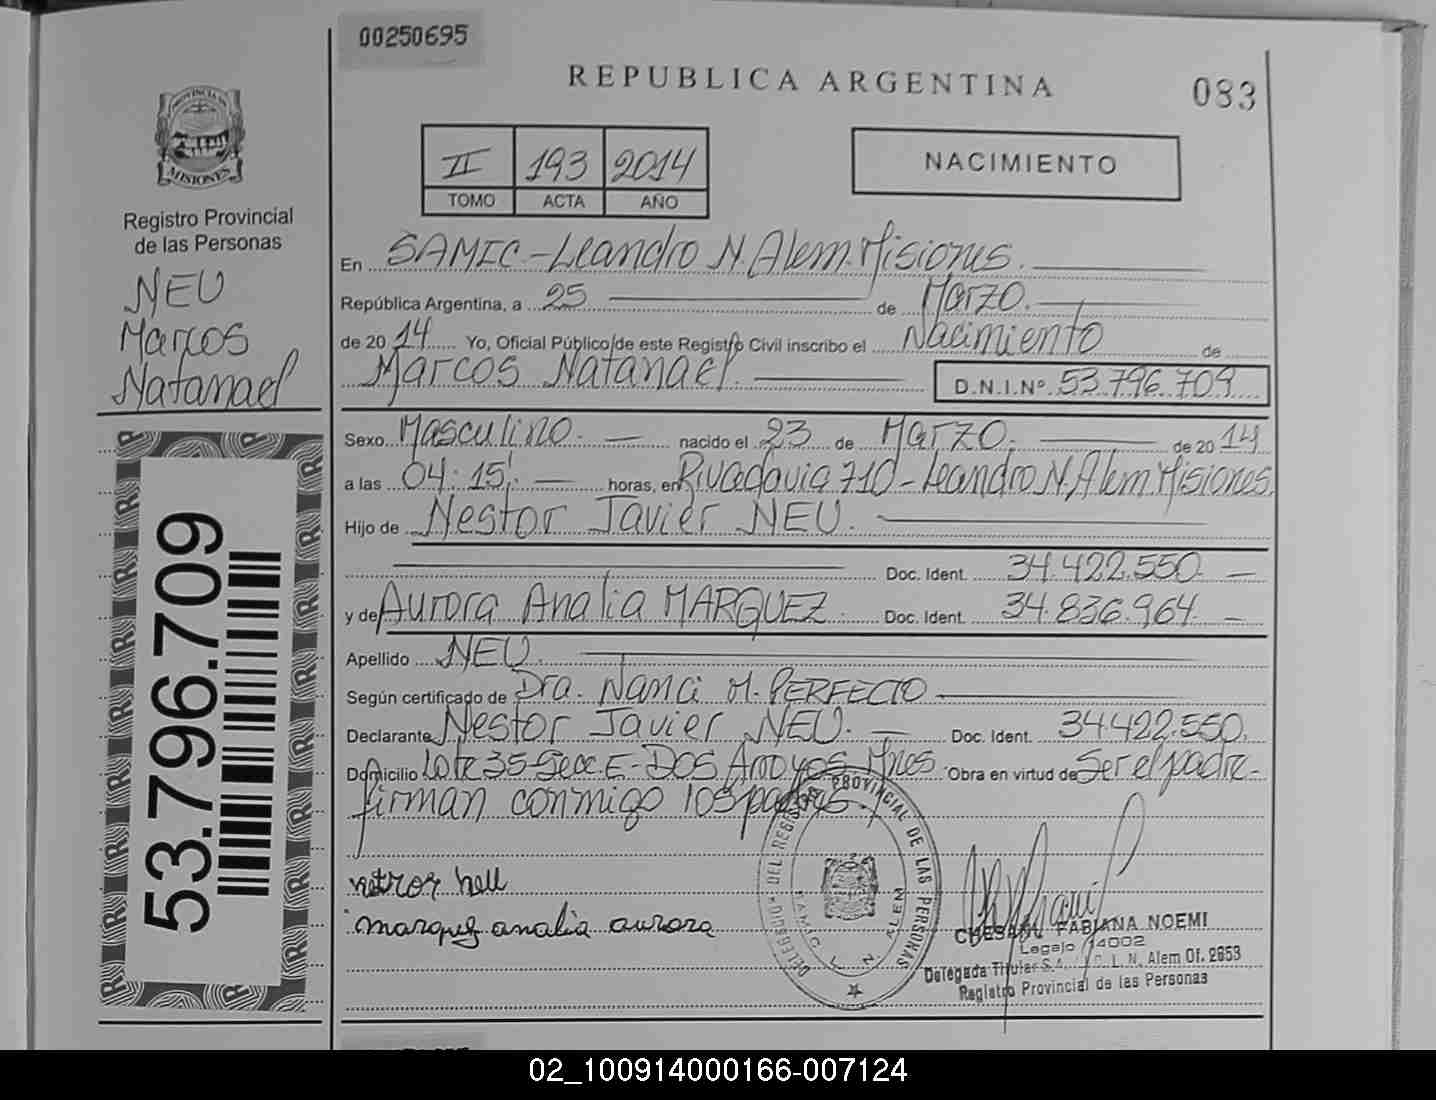 00250695
REPUBLICA ARGENTINA
083
PROVINCIA DE
MISIONES
Registro Provincial
de las Personas
NEU
Marcos
Natanael
II 193 2014
TOMO ACTA AÑO
NACIMIENTO
En SAMIC - Leandro N. Alem. Misiones.
República Argentina, a 25 de Marzo.
de 20 14 Yo, Oficial Público de este Registro Civil inscribo el Nacimiento de
Marcos Natanael. D.N.I.Nº 53.796.709
Sexo Masculino. nacido el 23 de Marzo. de 20 14
a las 04:15. horas, en Rivadavia 710 - Leandro N. Alem. Misiones.
Hijo de Nestor Javier NEU.
Doc. Ident. 34.422.550
y de Aurora Analia MARQUEZ. Doc. Ident. 34.836.964
Apellido NEU.
Según certificado de Dra. Nanci M. PERFECTO
Declarante Nestor Javier NEU. Doc. Ident. 34.422.550.
Domicilio Lote 35-Secc. E- DOS Arroyos Mnes. Obra en virtud de Ser el padre-
firman conmigo los padres.
marquez analia aurora
53.796.709
DELEGADO DEL REGISTRO PROVINCIAL DE LAS PERSONAS
SAMIC L. N. ALEM
FABIANA NOEMI
Legajo 14002
Delegada Titular L. N. Alem Of. 2653
Registro Provincial de las Personas
02_100914000166-007124